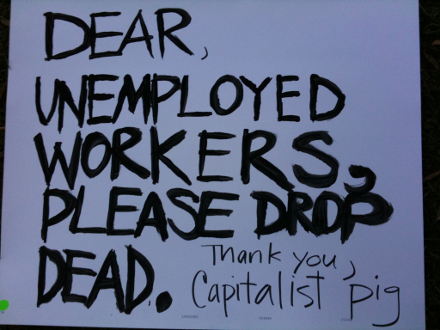 DEAR,
UNEMPLOYED
WORKERS,
PLEASE DROP
DEAD.
Thank you,
Capitalist pig